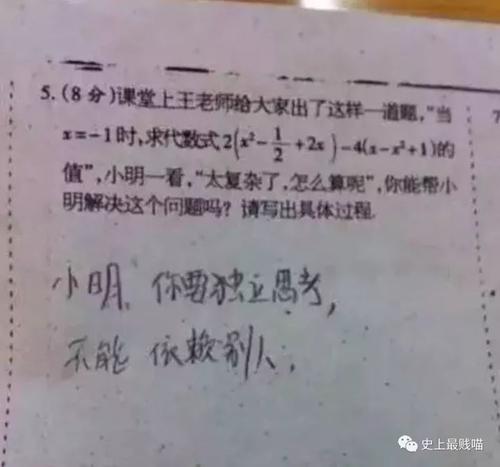 5.(8分)课堂上王老师给大家出了这样一道题,“当
x=-1时,求代数式2(x²-1/2+2x)-4(x-x²+1)的
值”,小明一看,“太复杂了,怎么算呢”,你能帮小
明解决这个问题吗?请写出具体过程.
7
小明、你要独立思考,
不能依赖别人.
史上最贱喵